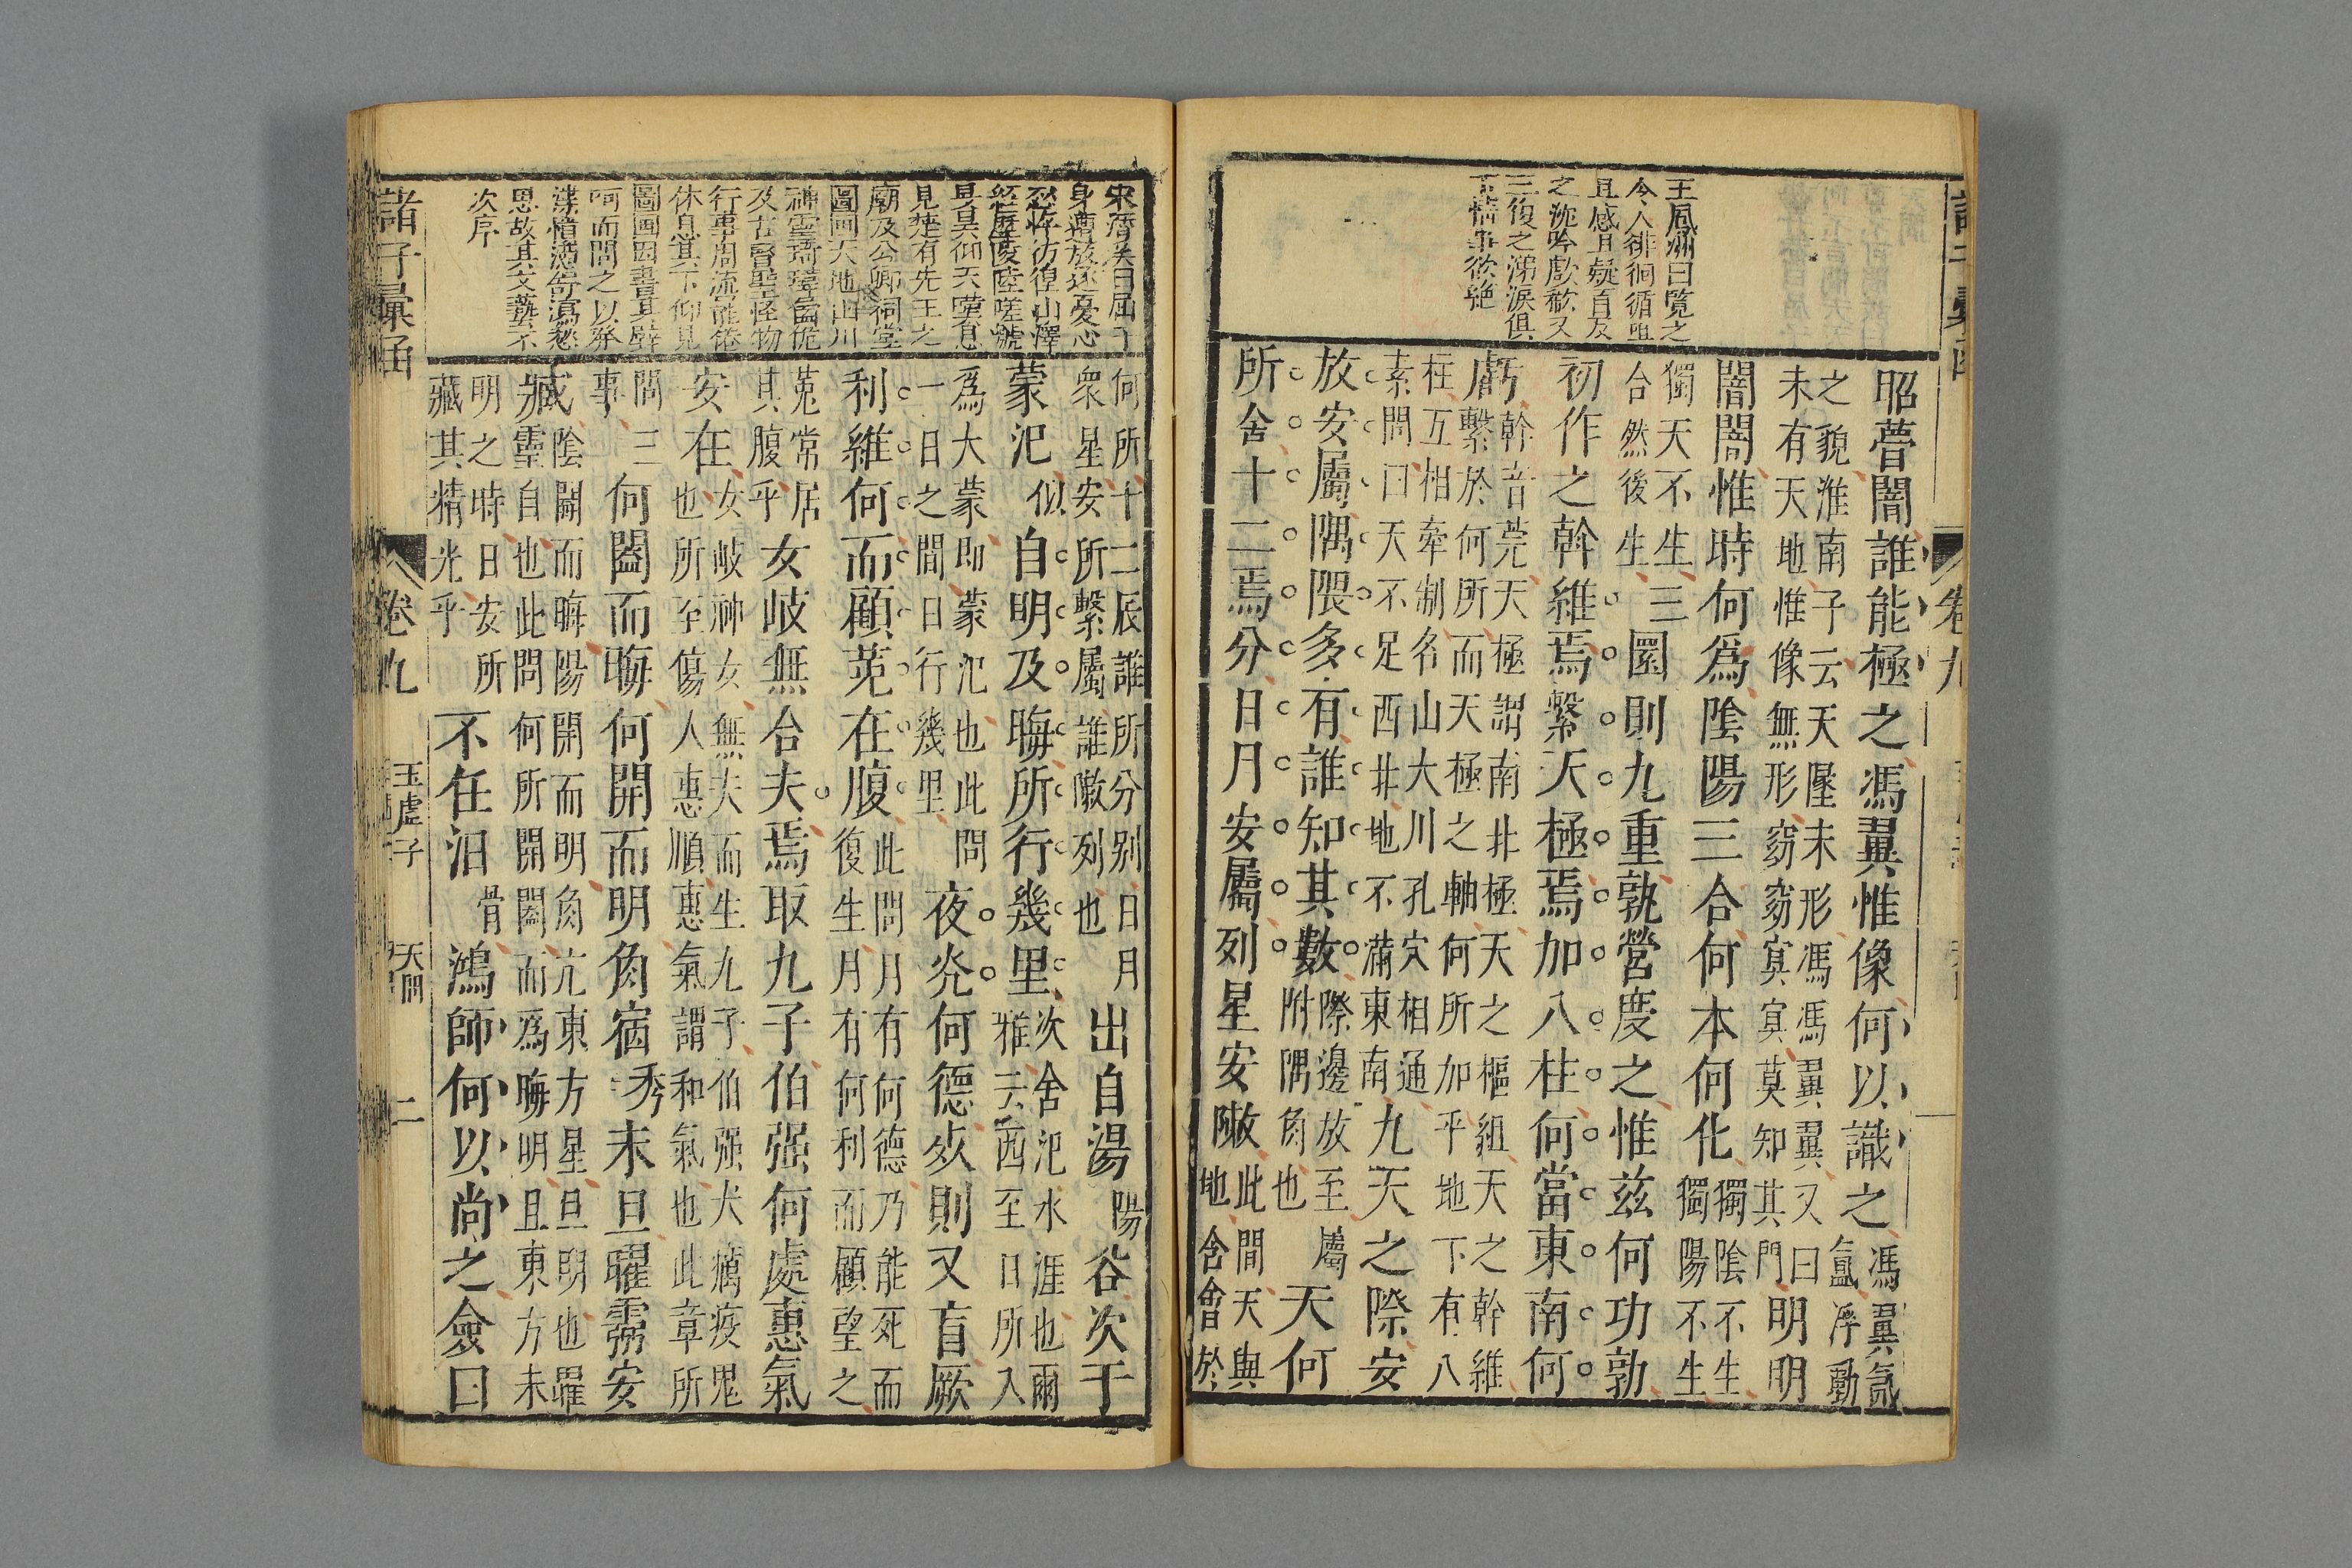 王鳳洲曰覽之
令人徘徊循咀
且感且疑直及
之沈吟歔欷又
三復之涕淚俱
下情事欲絶
昭瞢闇誰能極之馮翼惟像何以識之馮翼氤
氳浮動
之貌淮南子云天墬未形馮馮翼翼又曰
未有天地惟像無形窈窈冥冥莫知其門明明
闇闇惟時何爲陰陽三合何本何化獨陰不生
獨陽不生
獨天不生三
合然後生圜則九重孰營度之惟茲何功孰
初作之幹維焉繫天極焉加八柱何當東南何
虧幹音莞天極謂南北極天之樞紐天之幹維
繫於何所而天極之軸何所加乎地下有八
柱互相牽制名山大川孔穴相通
素問曰天不足西北地不滿東南九天之際安
放安屬隅隈多有誰知其數際邊放至屬
附隅角也天何
所沓十二焉分日月安屬列星安敶此間天與
地合會於
何所十二辰誰所分别日月
衆星安所繫屬誰敶列也出自湯陽谷次于
蒙汜似自明及晦所行幾里次舍汜水涯也爾
雅云西至日所入
爲大蒙即蒙汜也此問
一日之間日行幾里夜光何德死則又育厥
利維何而顧菟在腹此問月有何德乃能死而
復生月有何利而顧望之
菟常居
其腹乎女岐無合夫焉取九子伯强何處惠氣
安在女岐神女無夫而生九子伯强大癘疫鬼
也所至傷人惠順惠氣謂和氣也此章所
問三
事何闔而晦何開而明角宿秀未旦曜靈安
臧陰闢而晦陽開而明角亢東方星旦明也曜
靈自也此問何所開闔而爲晦明且東方未
明之時日安所
藏其精光乎不任汩骨鴻師何以尚之僉曰
宋濟美曰屈子
身遭放逐憂心
愁悴彷徨山澤
經歷陵陸嗟號
旻昊仰天嘆息
見楚有先王之
廟及公卿祠堂
圖畫天地山川
神靈琦瑋僪佹
及古賢聖怪物
行事周流罷倦
休息其下仰見
圖畫因書其壁
呵而問之以渫
憤懣舒瀉愁
思故其文義不
次序
諸子彙函
卷九
玉虛子
天問
二